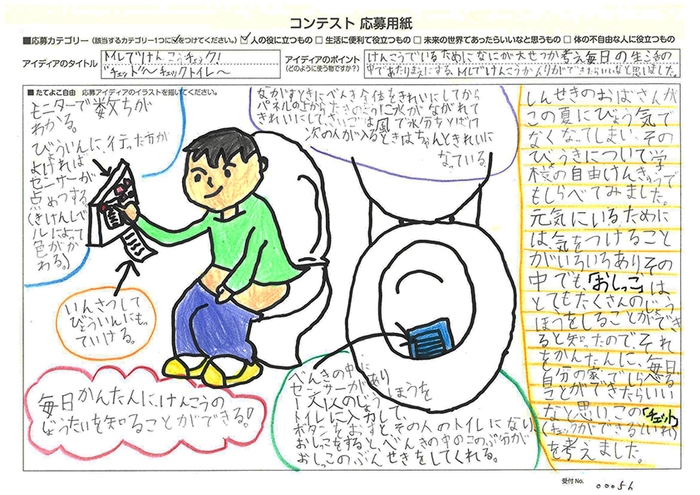 コンテスト 応募用紙
■応募カテゴリー(該当するカテゴリー1つに☑をつけてください。) ☑人の役に立つもの □生活に便利で役立つもの □未来の世界であったらいいなと思うもの □体の不自由な人に役立つもの
アイディアのタイトル
トイレでけんこうチェック!
〜チェックトイレ〜
アイディアのポイント
(どのように使う物ですか?)
けんこうでいるためになにが大せつか考え毎日の生活の
中であたりまえにするトイレでけんこうか
できたらいいなと思いました。
■たてよこ自由 応募アイディアのイラストを描いてください。
モニターで数ちが
わかる。
びょういんに行った方が
よければ
センサーが
点めつする
(きけんレベ
ルによって
色がか
わる)
いんさつして
びょういんにもっ
ていける。
毎日かんたんに、けんこうの
じょうたいを知ることができる!
ながすときにべんき全体をきれいにしてから
きれいにして、さいごは風で水分をとばけ
次の人が入るときはちゃんときれいに
なっている。
べんきの中に
センサーがあり
1人1人のじょうほうを
トイレに入力して、
ボタンをおすとその人のトイレになり
おしっこをすると、べんきの中のこのぶ分が
おしっこのぶんせきをしてくれる。
しんせきのおばさんが
この夏にびょう気で
なくなってしまい、その
びょうきについて学
校の自由けんきゅうで
もしらべてみました。
元気にいるために
は、気をつけること
がいろいろあり、その
中でも、「おしっこ」は、
とてもたくさんのじょう
ほうをしることができ
ると知ったので、それ
をかんたんに、毎日
自分の家でしらべる
ことができたらいい
なと思い、この「チェット
(チェックができるといれ)
を考えました。
受付No. 00056